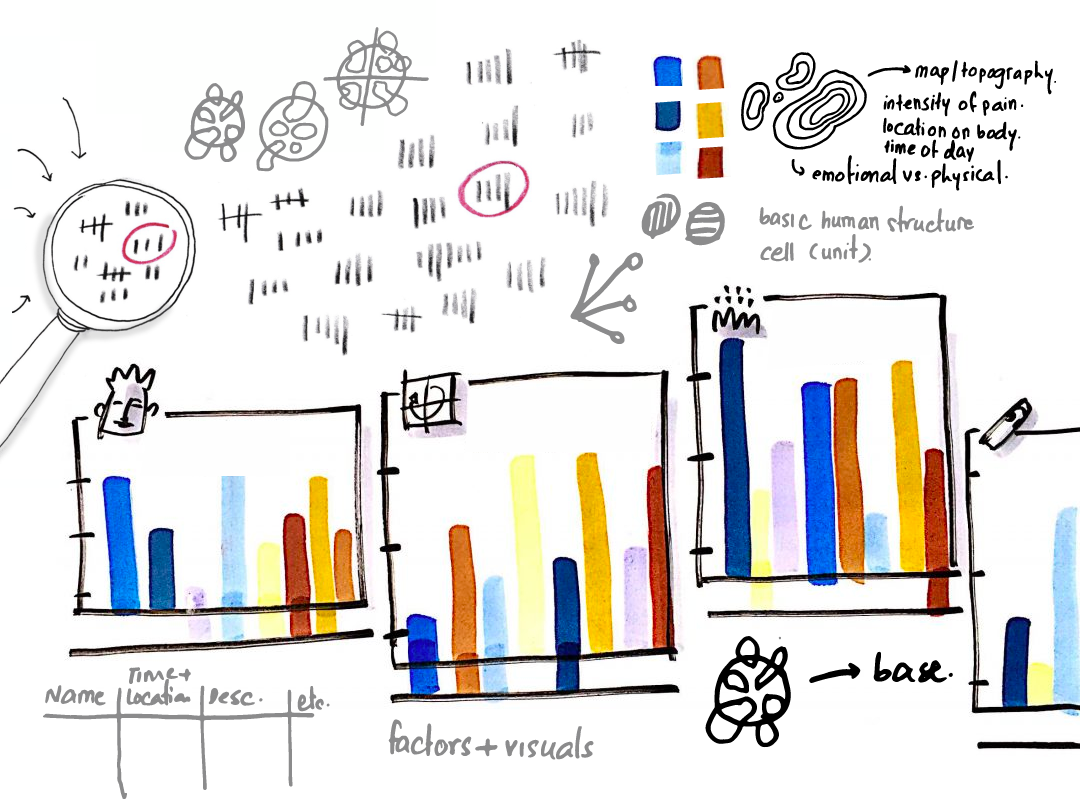 map/topography.
intensity of pain.
location on body.
time of day
emotional vs. physical.
basic human structure
cell (unit).
base.
Name
Time +
Location
Desc.
etc.
factors + visuals